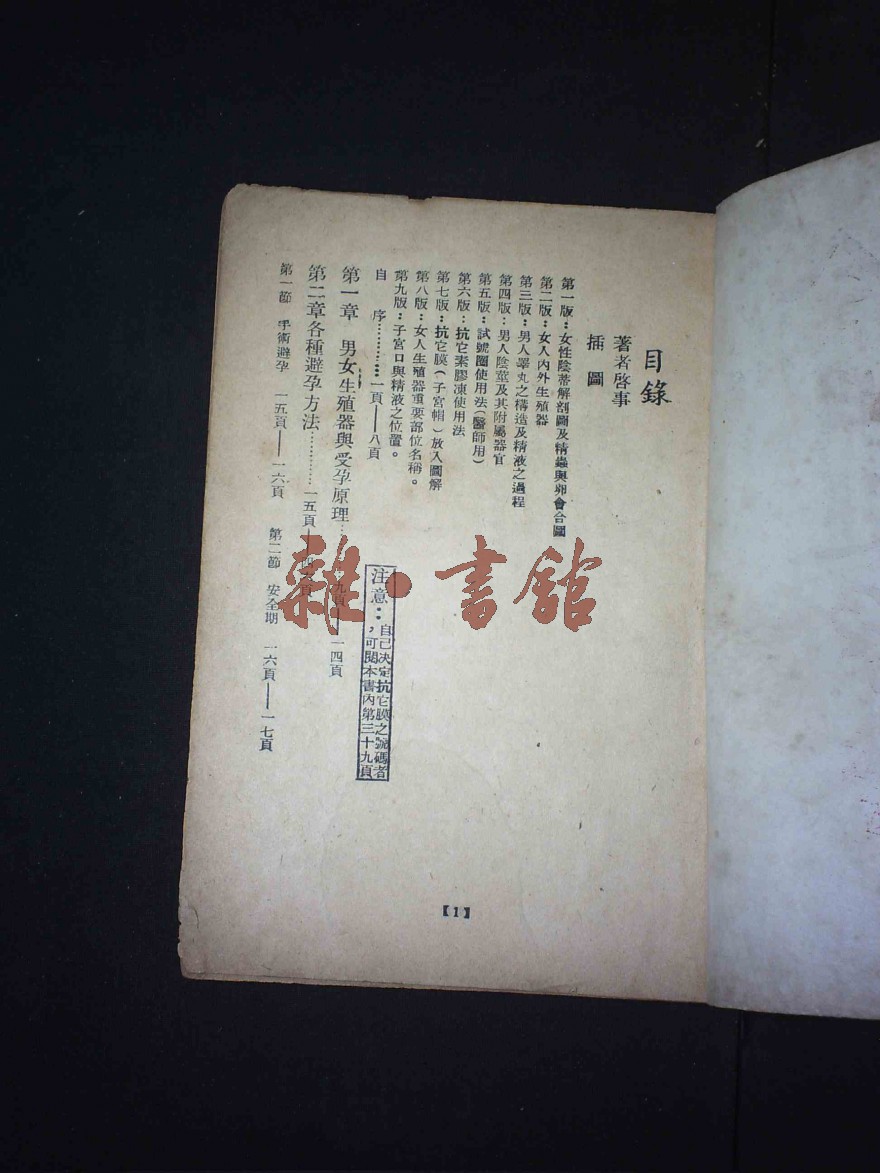 目錄
著者啓事
插圖
第一版：女性陰蒂解剖圖及精蟲與卵會合圖
第二版：女人內外生殖器
第三版：男人睾丸之構造及精液之過程
第四版：男人陰莖及其附屬器官
第五版：試號圈使用法（醫師用）
第六版：抗它素膠凍使用法
第七版：抗它膜（子宮帽）放入圖解
第八版：女人生殖器重要部位名稱。
第九版：子宮口與精液之位置。
自序…………一頁—八頁
第一章 男女生殖器與受孕原理…九頁——一四頁
第二章各種避孕方法…………一五頁—四頁
第一節 手術避孕 一五頁——一六頁 第二節 安全期 一六頁——一七頁
注意：自己決定抗它膜之號碼者
，可閱本書內第三十九頁
【1】
雜·書館